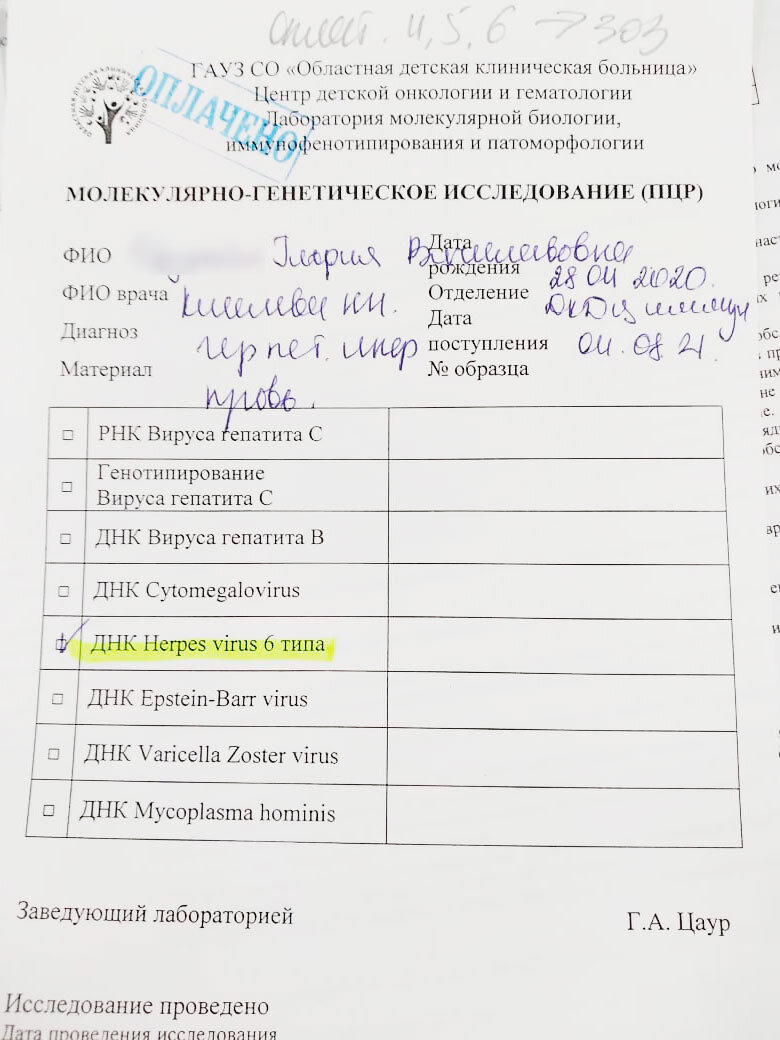 4, 5, 6 → 303
ГАУЗ СО «Областная детская клиническая больница»
Центр детской онкологии и гематологии
Лаборатория молекулярной биологии,
иммунофенотипирования и патоморфологии
ОПЛАЧЕНО
МОЛЕКУЛЯРНО-ГЕНЕТИЧЕСКОЕ ИССЛЕДОВАНИЕ (ПЦР)
ФИО Глория Вячеславовна
Дата рождения 28 04 2020.
ФИО врача
Отделение
Диагноз герпет. инф
Дата поступления 04.08 21.
Материал кровь.
№ образца
□ РНК Вируса гепатита С
□ Генотипирование
Вируса гепатита С
□ ДНК Вируса гепатита В
□ ДНК Cytomegalovirus
ДНК Herpes virus 6 типа
□ ДНК Epstein-Barr virus
□ ДНК Varicella Zoster virus
□ ДНК Mycoplasma hominis
Заведующий лабораторией Г.А. Цаур
Исследование проведено
Дата проведения исследования